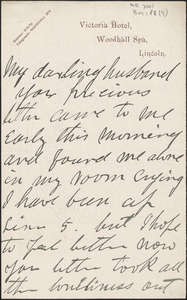 Victoria Hotel,
Woodhall Spa,
Lincoln.
My darling husband
your precious
letter came to me
early this morning
and found me alone
in my room crying
I have been up
since 5. but I hope
to feel better now
your letter took all
the loneliness out